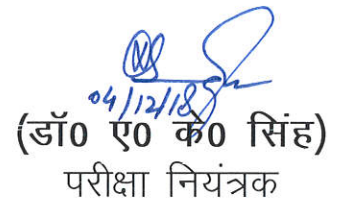 04/12/18
(डॉ0 ए0 के0 सिंह)
परीक्षा नियंत्रक